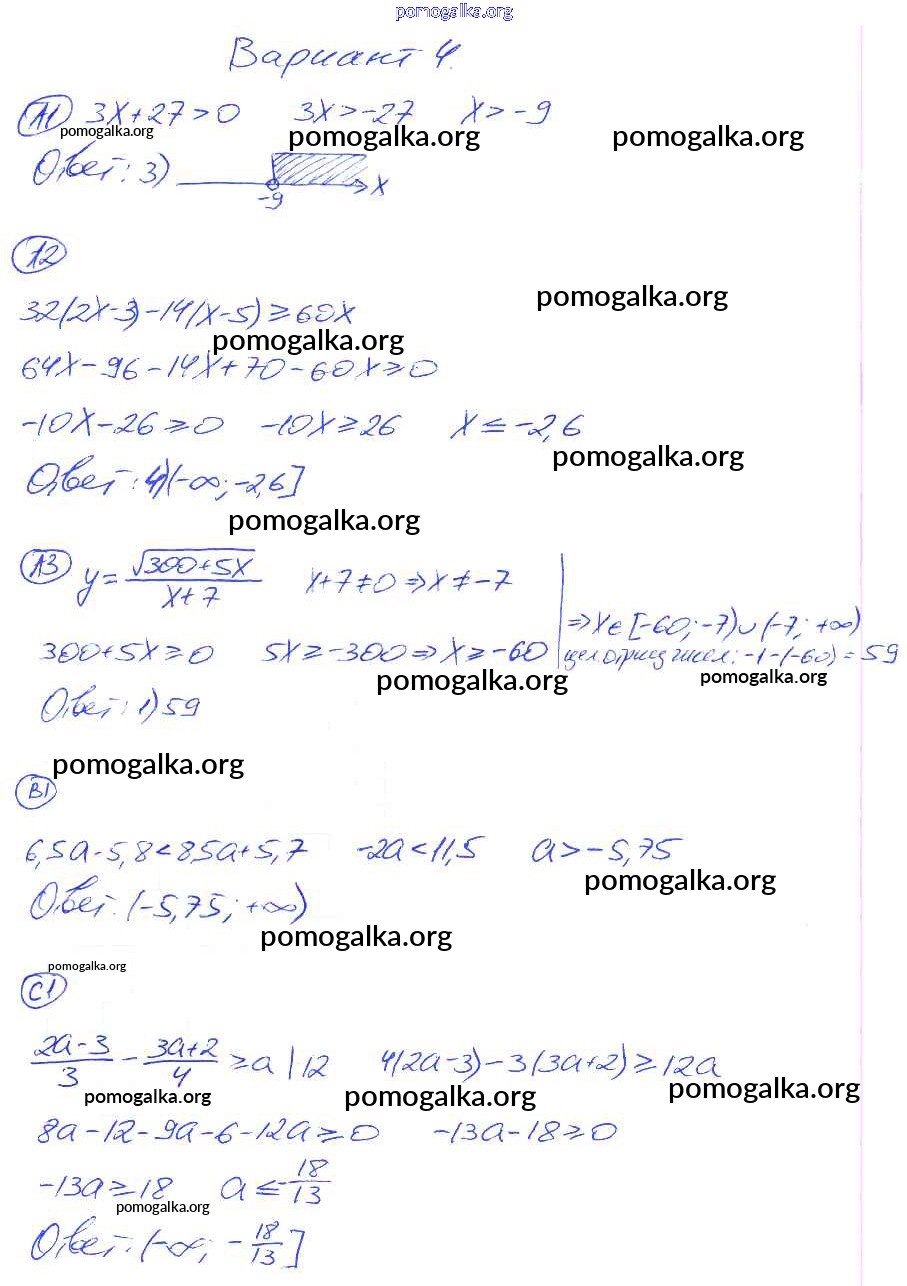 pomogalka.org
Вариант 4.
А1 3x+27>0 3x>-27 x>-9
pomogalka.org pomogalka.org pomogalka.org
Ответ: 3) x
-9
А2
pomogalka.org
32(2x-3)-14(x-5)≥60x
pomogalka.org
64x-96-14x+70-60x≥0
-10x-26≥0 -10x≥26 x≤-2,6
pomogalka.org
Ответ: 4)(-∞;-2,6]
pomogalka.org
А3 y=√(300+5x)/(x+7) x+7≠0⇒x≠-7
⇒x∈[-60;-7)∪(-7;+∞)
300+5x≥0 5x≥-300⇒x≥-60 цел. отриц чисел: -1-(-60)=59
pomogalka.org pomogalka.org
Ответ: 1)59
pomogalka.org
В1
6,5a-5,8<8,5a+5,7 -2a<11,5 a>-5,75
pomogalka.org
Ответ: (-5,75;+∞)
pomogalka.org
pomogalka.org
С1
(2a-3)/3 - (3a+2)/4 ≥a |12 4(2a-3)-3(3a+2)≥12a
pomogalka.org pomogalka.org pomogalka.org
8a-12-9a-6-12a≥0 -13a-18≥0
-13a≥18 a≤-18/13
pomogalka.org
Ответ: (-∞; -18/13]